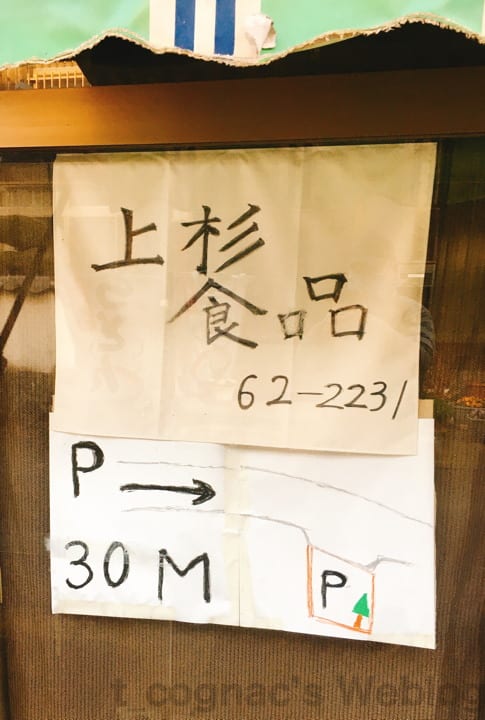 上杉
食品
62-2231
P
→
30M
P
t_cognac's Weblog